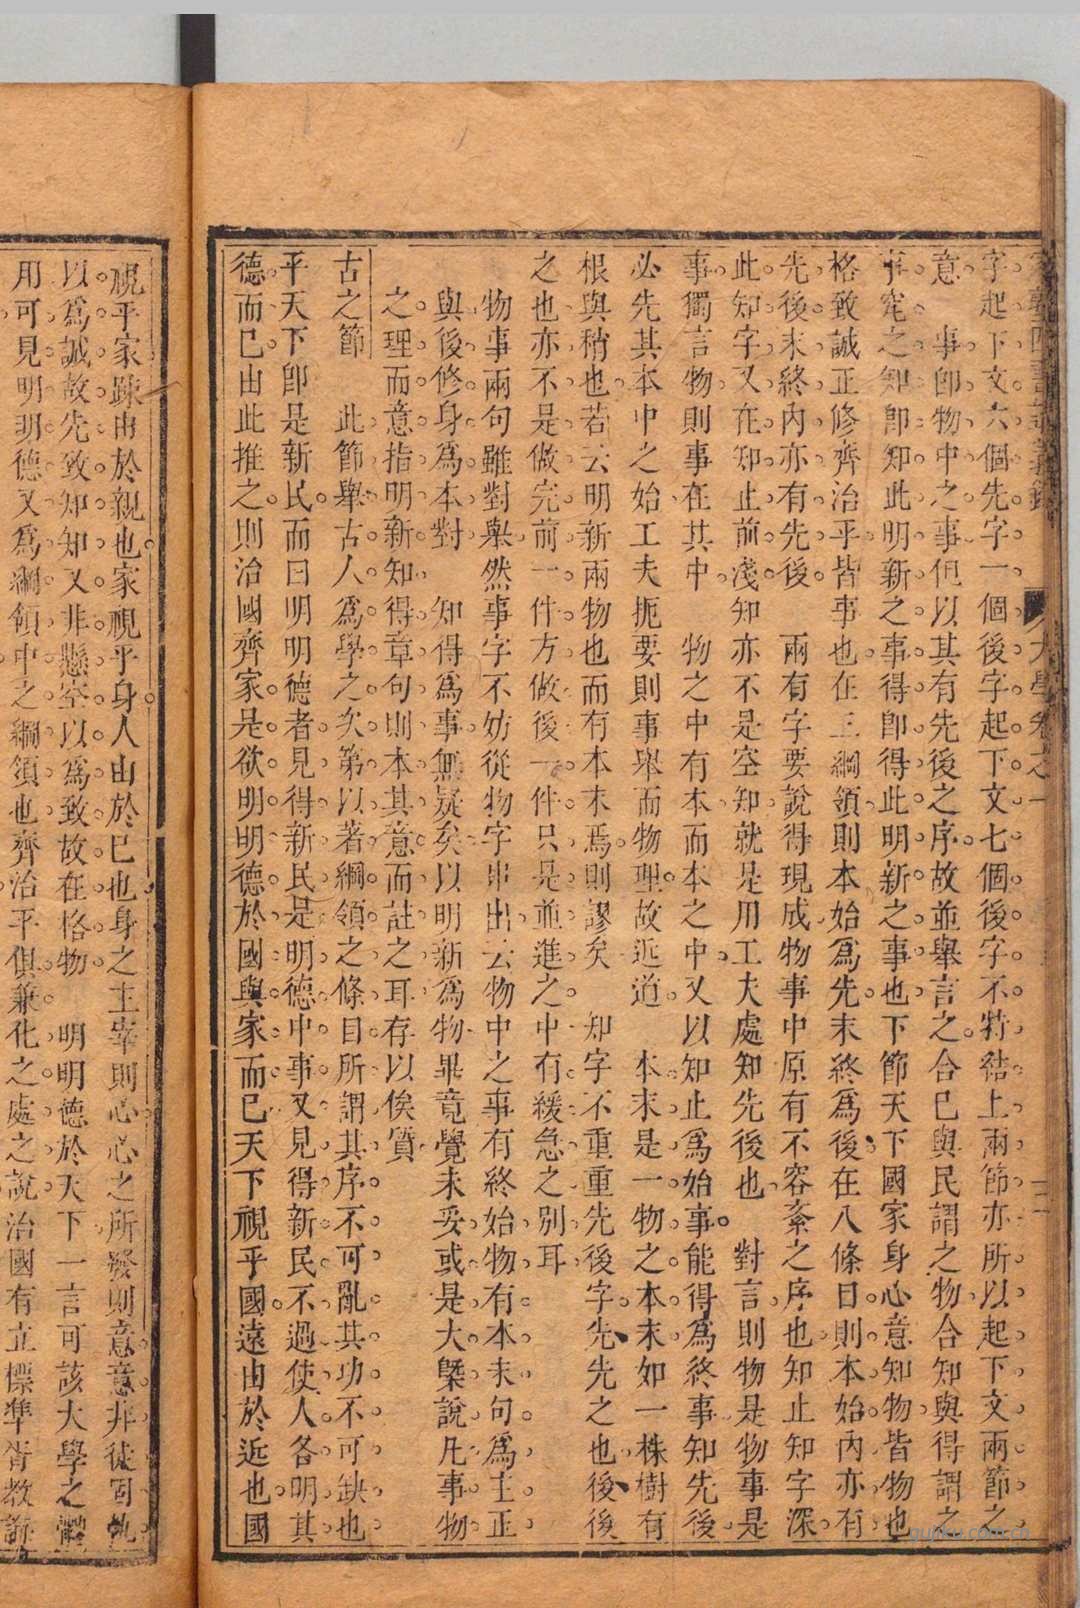 大學卷之一
字起下文六個先字一個後字起下文七個後字不特結上兩節亦所以起下文兩節之
意　事卽物中之事但以其有先後之序故並舉言之合己與民謂之物合知與得謂之
事究之知卽知此明新之事得卽得此明新之事也下節天下國家身心意知物皆物也
格致誠正修齊治平皆事也在三綱領則本始爲先末終爲後在八條目則本始內亦有
先後末終內亦有先後　兩有字要說得現成物事中原有不容紊之序也知止知字深
此知字又在知止前淺知亦不是空知就是用工夫處知先後也　對言則物是物事是
事獨言物則事在其中　物之中有本而本之中又以知止爲始事能得爲終事知先後
必先其本中之始工夫扼要則事舉而物理故近道　本末是一物之本末如一株樹有
根與稍也若云明新兩物也而有本末焉則謬矣　知字不重重先後字先先之也後後
之也亦不是做完前一件方做後一件只是並進之中有緩急之別耳
物事兩句雖對舉然事字不妨從物字串出云物中之事有終始物有本末句爲主正
與後修身爲本對　知得爲事無疑矣以明新爲物畢竟覺未妥或是大槩說凡事物
之理而意指明新知得章句則本其意而註之耳存以俟質
古之節　此節舉古人爲學之次第以著綱領之條目所謂其序不可亂其功不可缺也
平天下卽是新民而曰明明德者見得新民是明德中事又見得新民不過使人各明其
德而已由此推之則治國齊家是欲明明德於國與家而已天下視乎國遠由於近也國
視乎家疎由於親也家視乎身人由於已也身之主宰則心心之所發則意意非徒
以爲誠故先致知知又非懸空以爲致故在格物　明明德於天下一言可該大學之體
用可見明明德又爲綱領中之綱領也齊治平俱兼化之處之說治國有立標準胥教誨